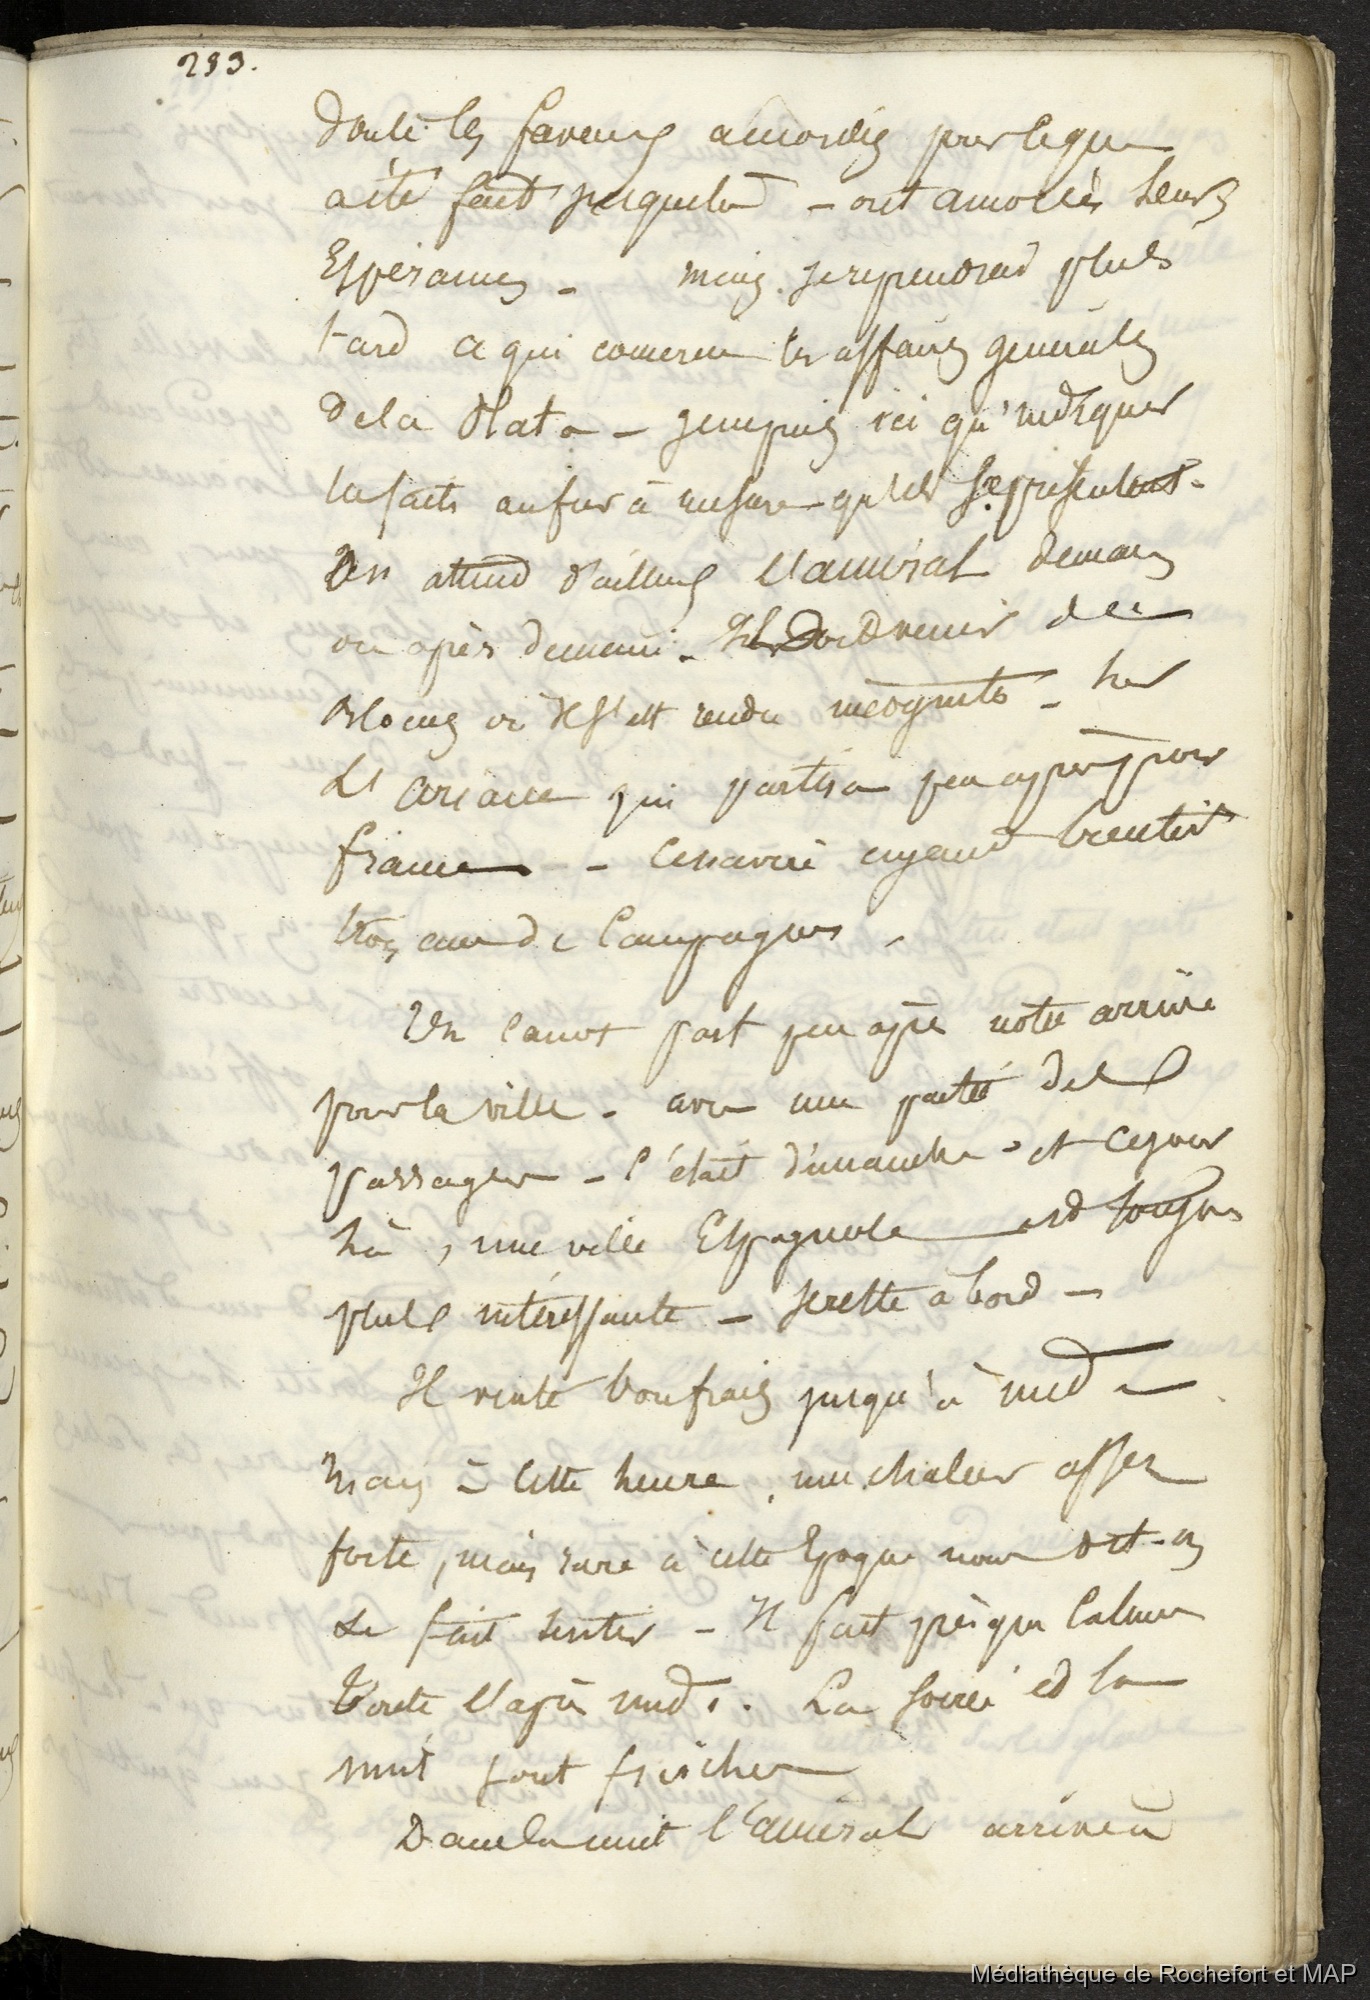 233.
doute les faveurs accordées pour ce que
a été fait jusque là – ont
Espérances – mais je reprendrai plus
tard ce qui concerne les affaires générales
de la Plata – je ne puis ici qu'indiquer
les faits au fur à mesure qu'ils se présentent –
On attend d'ailleurs l'amiral demain
ou après demain. Il doit venir de
où il s'est rendu incognito – sur
L'ariane qui partira peu après pour
france – – ce navire ayant bientôt
trois ans de Campagnes.
Un Canot part peu après notre arrivée
pour la ville – avec une partie des
passagers – C'était dimanche – et ce jour
là, une ville Espagnole est toujours
plus intéressante – je reste à bord –
Il vente bon frais jusqu'à midi –
Mais à cette heure, une chaleur assez
forte, mais rare à cette Epoque nous dit-on
se fait sentir – Il fait presque Calme
toute l'après midi. La soirée et la
nuit sont fraiches
Dans la nuit l'amiral arrive à
Médiathèque de Rochefort et MAP